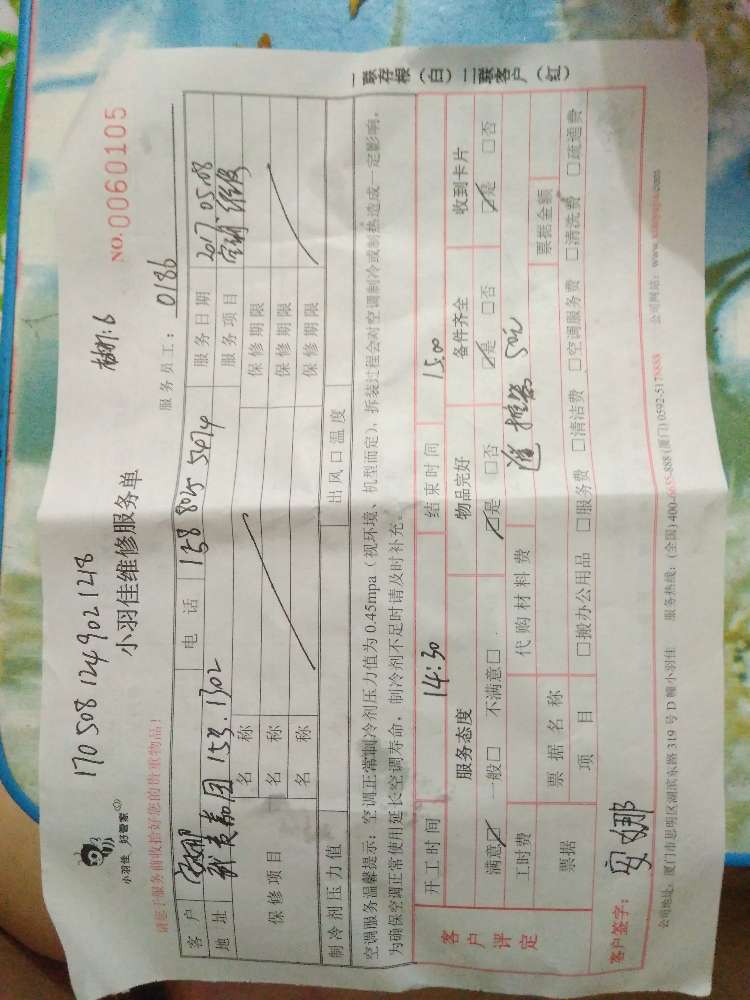 1705081249021218
小羽佳 好管家
小羽佳维修服务单
NO.0060105
请您于服务前收拾好您的贵重物品!
服务员工: 0186
客户 安娜 电话 158 805 5474 服务日期 2017.05.08
地址 153.1302 服务项目 空调 维修
保修项目 名称 保修期限
名称 保修期限
名称 保修期限
制冷剂压力值 出风口温度
空调服务温馨提示:空调正常制冷剂压力值为0.45mpa(视环境、机型而定),拆装过程会对空调制冷或制热造成一定影响,
为确保空调正常使用延长空调寿命,制冷剂不足时请及时补充。
客户评定 开工时间 14:30 结束时间 15:00
服务态度 物品完好 备件齐全 收到卡片
满意☑ 一般□ 不满意□ ☑是 □否 ☑是 □否 ☑是 □否
工时费 代购材料费 50元
票据 票据名称 票据金额
项目 □搬办公用品 □服务费 □清洁费 □空调服务费 □清洗费 □疏通费
客户签字: 安娜
公司地址:厦门市思明区湖滨东路319号D幢小羽佳 服务热线:(全国)400-6055-888(厦门)0592-5178888 公司网站:
一联存根(白)二联客户(红)